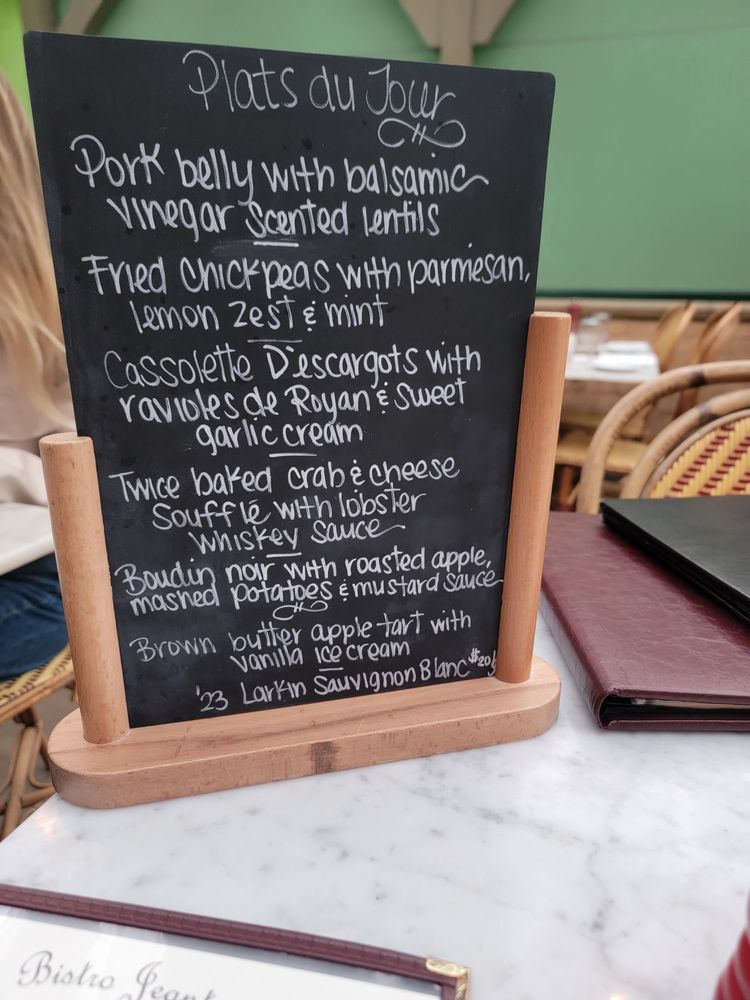 Plats du Jour
Pork belly with balsamic
vinegar scented lentils
Fried Chickpeas with parmesan,
lemon zest & mint
Cassolette D'escargots with
ravioles de Royan & Sweet
garlic cream
Twice baked crab & cheese
Soufflé with lobster
whiskey sauce
Boudin noir with roasted apple,
mashed potatoes & mustard sauce
Brown butter apple tart with
vanilla ice cream
'23 Larkin Sauvignon Blanc $20/
Bistro